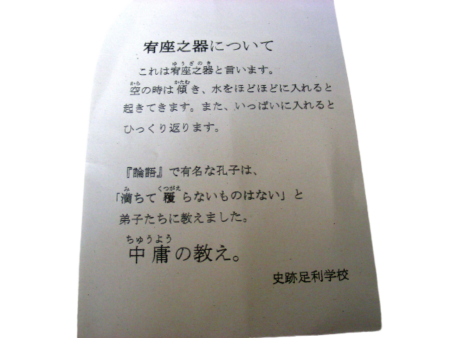 宥座之器について
これは宥座之器と言います。
空の時は傾き、水をほどほどに入れると
起きてきます。また、いっぱいに入れると
ひっくり返ります。
『論語』で有名な孔子は、
「満ちて覆らないものはない」と
弟子たちに教えました。
中庸の教え。
史跡足利学校